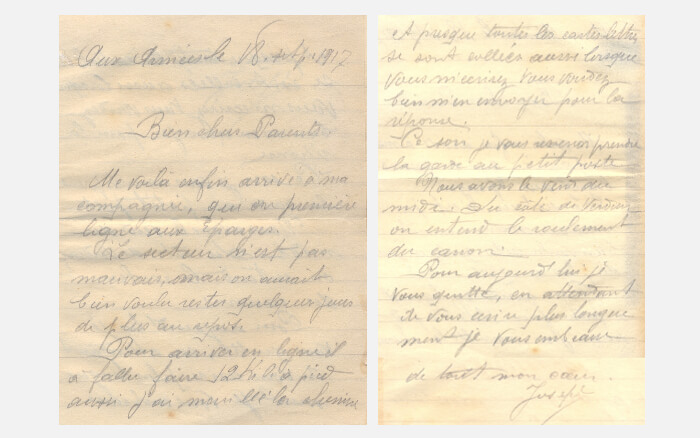 Aux Armées le 18 sept 1917
Bien chers Parents,
Me voilà enfin arrivé à ma
compagnie, qui en première
ligne aux Eparges.
Le secteur n'est pas
mauvais, mais on aurait
bien voulu rester quelques jours
de plus au repos.
Pour arriver en ligne il
a fallu faire 12 kil à pied
aussi j'ai mouillé la chemise
A presque toutes les cartes lettres
se sont collées aussi lorsque
vous m'écrirez vous voudrez
bien m'en envoyer pour la
réponse.
Ce soir je vais prendre
la garde au petit poste
Nous avons le vent du
midi. Du côté de Verdun
on entend le roulement
du canon.
Pour aujourd'hui je
vous quitte, en attendant
de vous écrire plus longue
ment je vous embrasse
de tout mon cœur.
Joseph